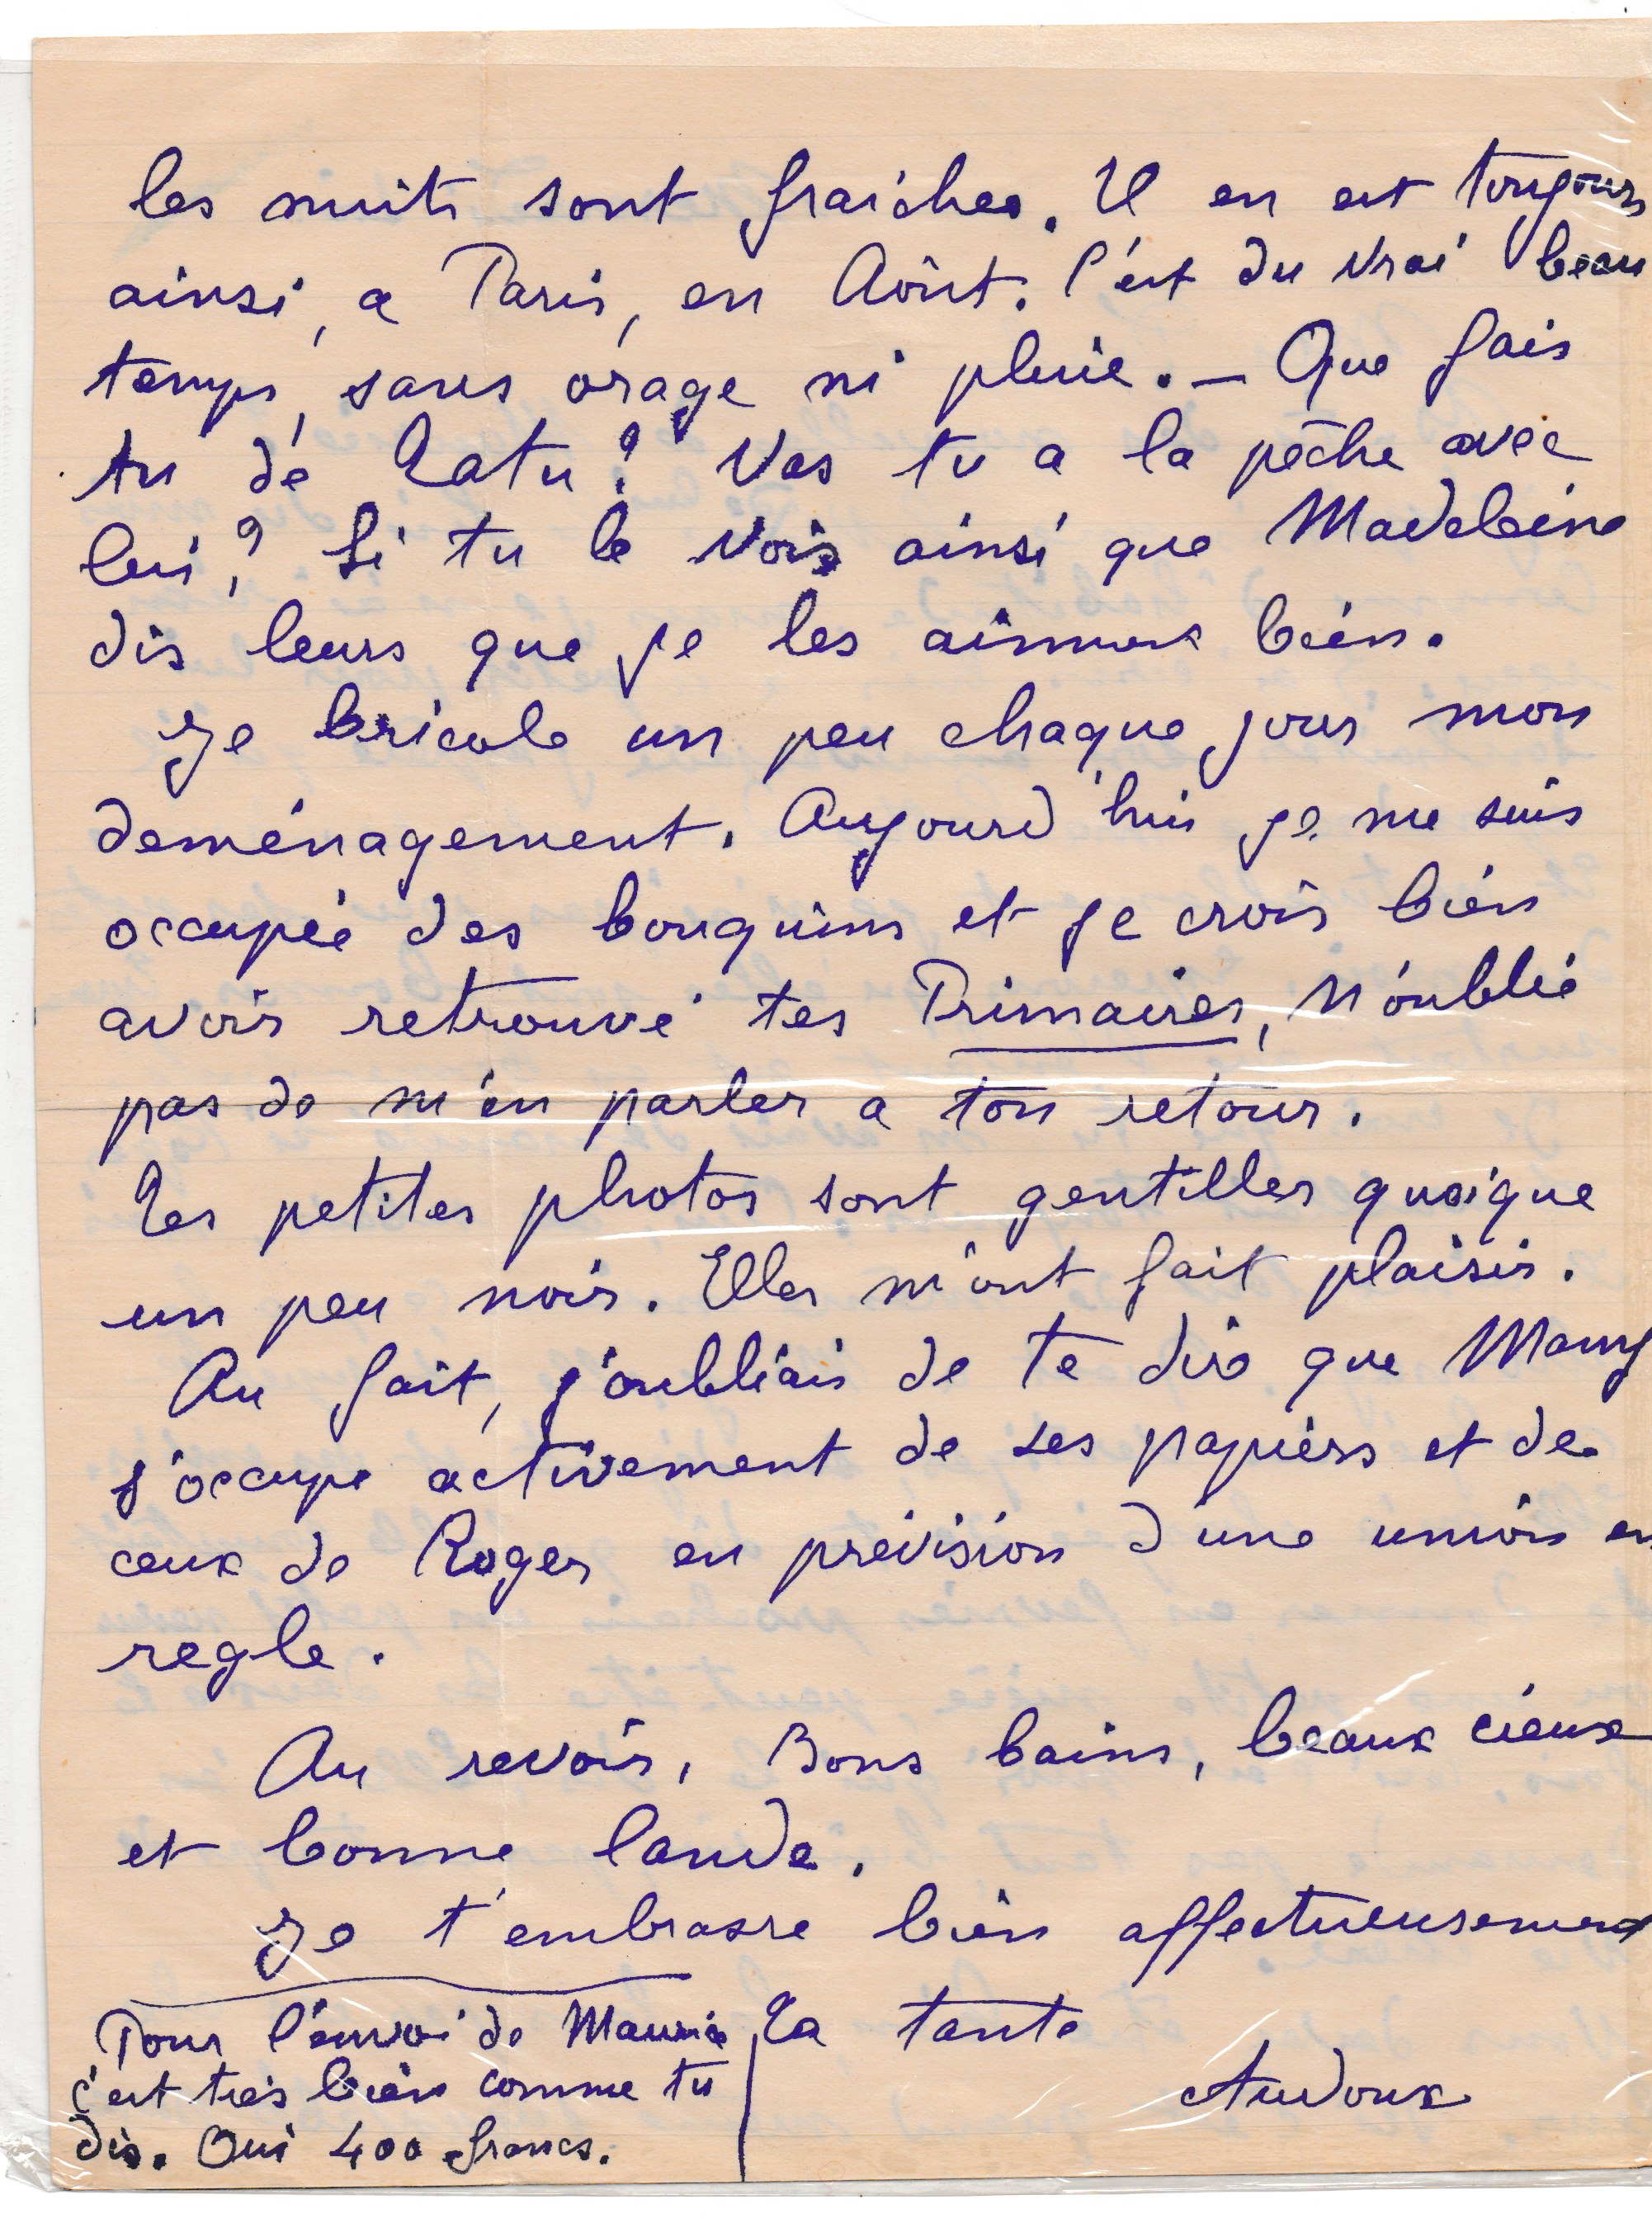 les nuits sont fraiches. Il en est toujours
ainsi, a Paris, en Août. C'est du vrai beau
temps, sans orage ni pluie. — Que fais
tu de Latu ? Vas tu a la pêche avec
lui ? Si tu le vois ainsi que Madeleine
dis leurs que je les aimons bien.
Je bricole un peu chaque jour mon
deménagement. Aujourd'hui je me suis
occupée des bouquins et je crois bien
avoir retrouvé tes Primaires, N'oublie
pas de m'en parler a ton retour.
Les petites photos sont gentilles quoique
un peu noir. Elles m'ont fait plaisir.
Au fait, j'oubliais de te dire que
s'occupe activement de ses papiers et de
ceux de Roger en prévision d'une union en
regle.
Au revoir, Bons bains, beaux cieux
et bonne lande.
Je t'embrasse bien affectueusement
Ta tante
Audoux
Pour l'envoi de Maurice
c'est très bien comme tu
dis. Oui 400 francs.